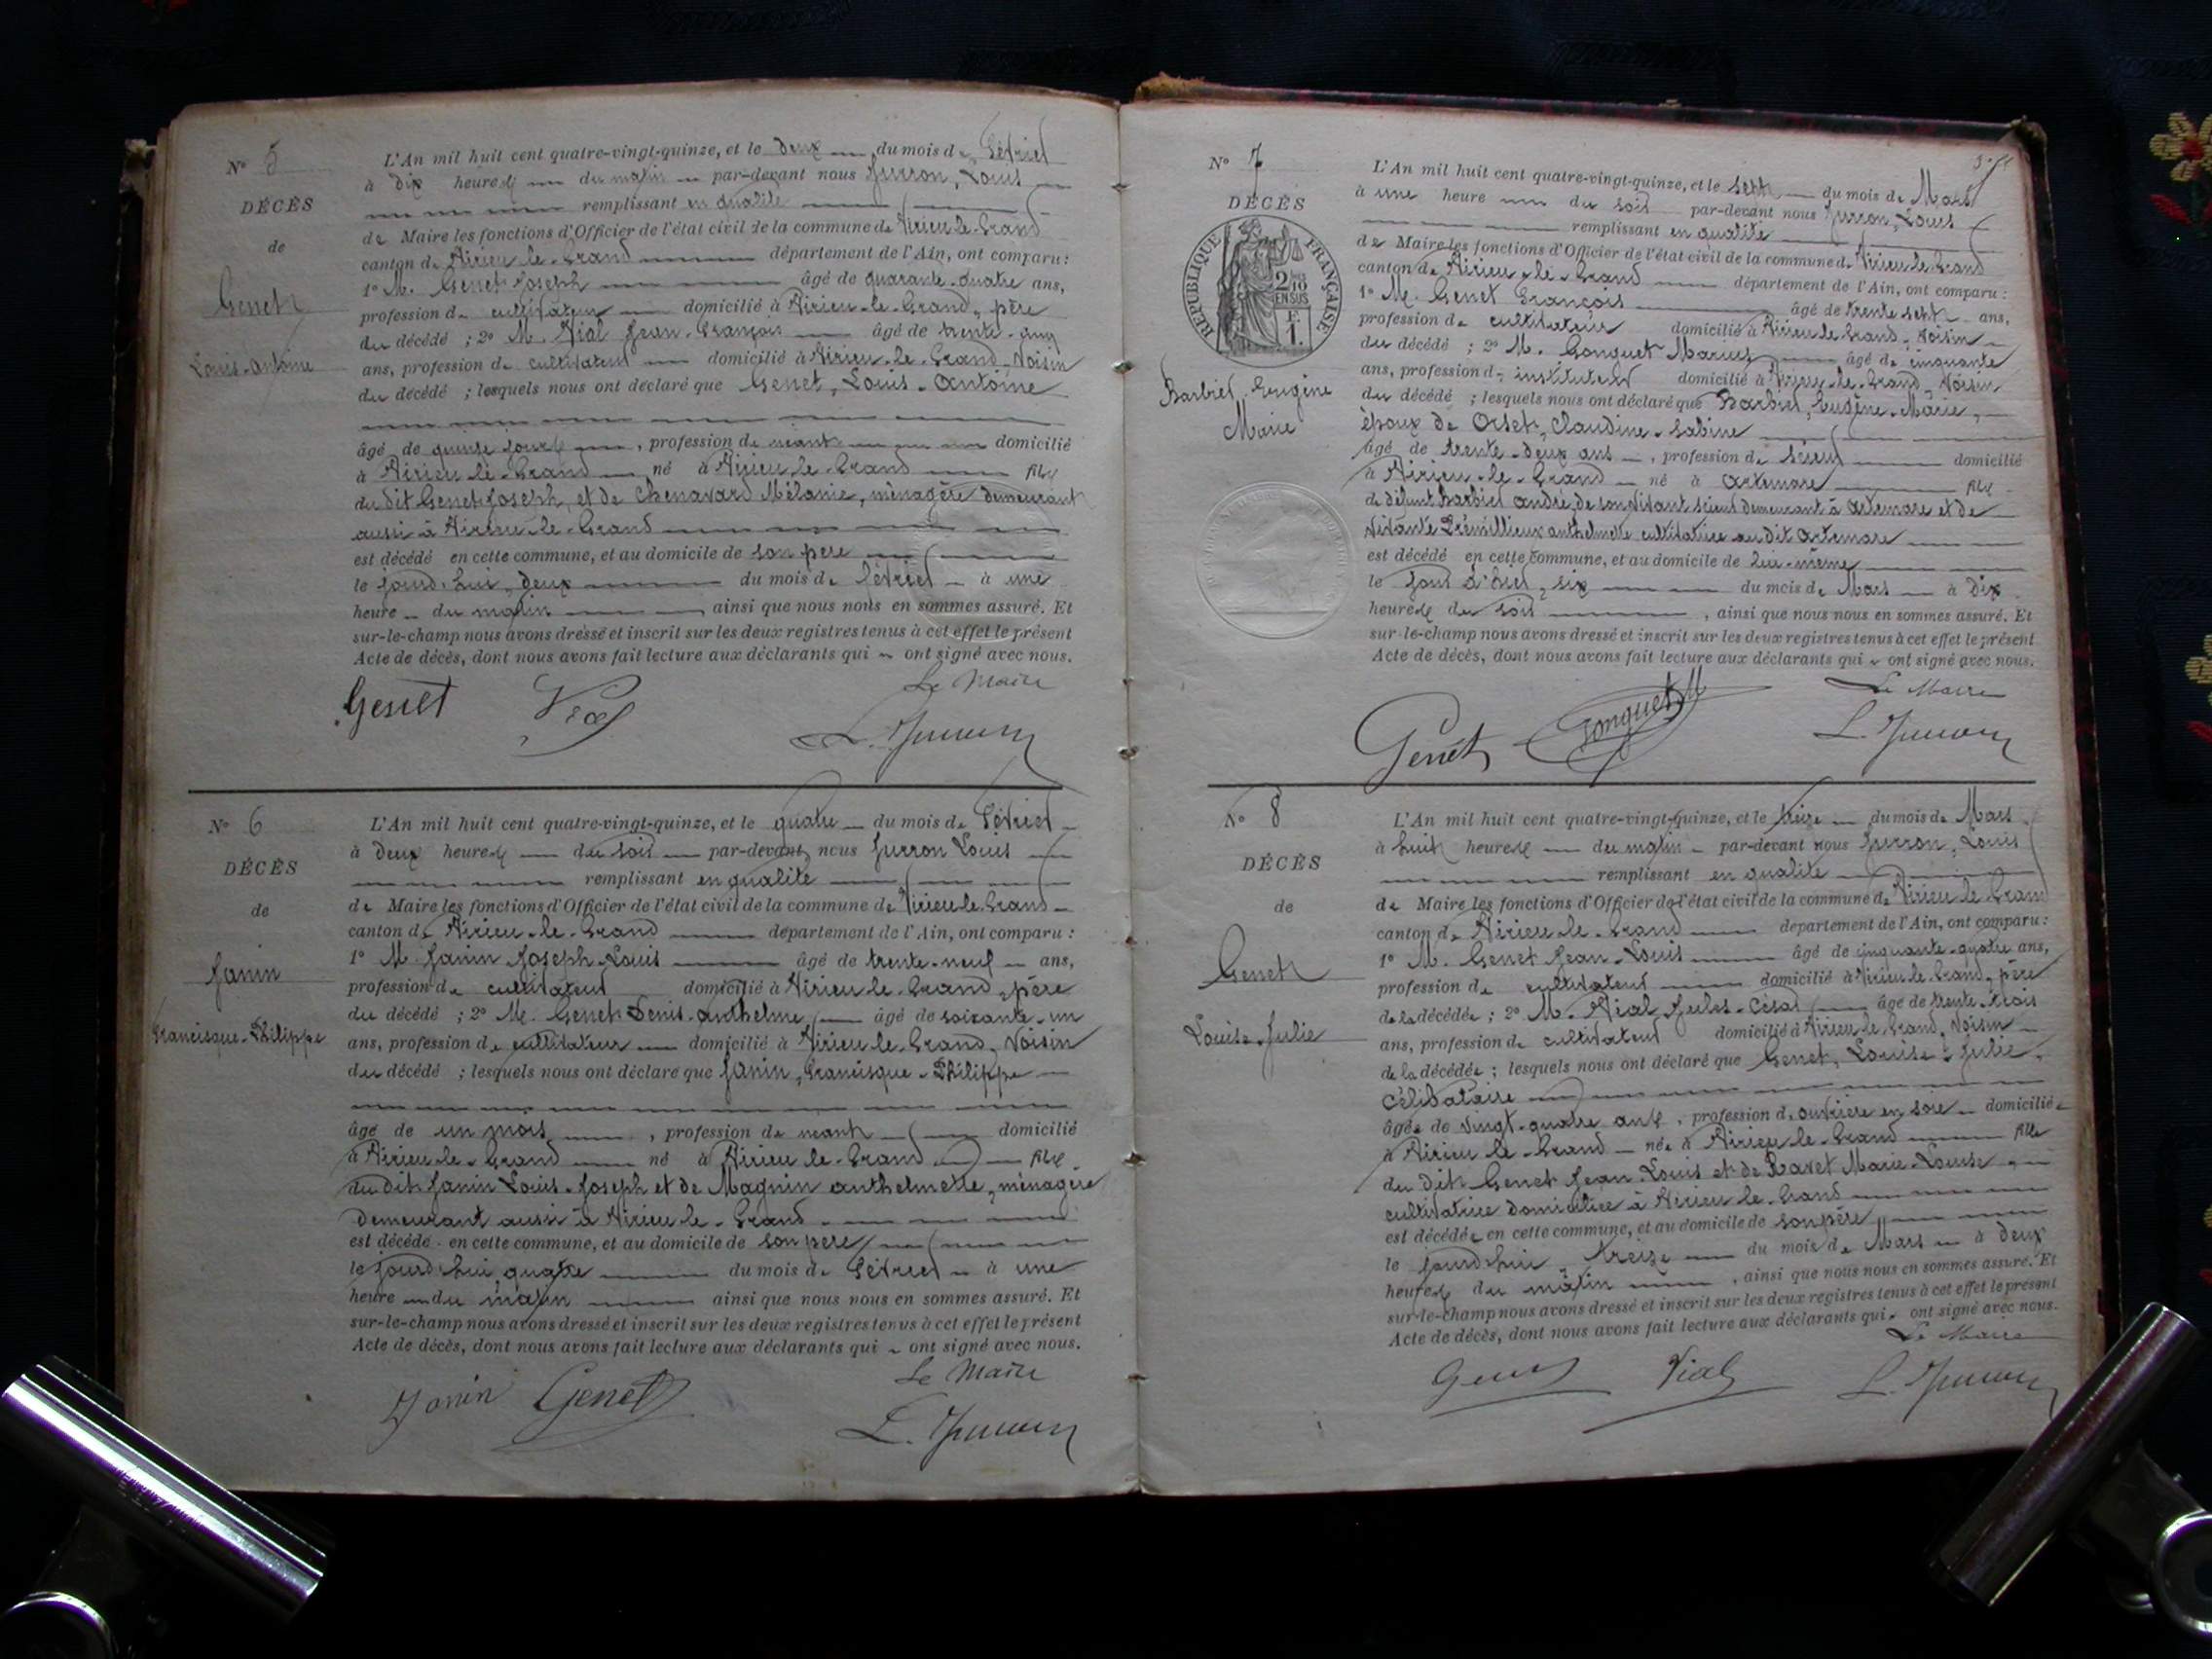 N° 5
DÉCÈS
de
Genet
Louis-Antoine
L'An mil huit cent quatre-vingt-quinze, et le deux du mois de Février
à dix heures du matin par-devant nous Jurron, Louis
remplissant en qualité
de Maire les fonctions d'Officier de l'état civil de la commune de Virieu-le-Grand
canton de Virieu-le-Grand département de l'Ain, ont comparu :
1° M. Genet Joseph âgé de quarante-quatre ans,
profession de cultivateur domicilié à Virieu-le-Grand, père
du décédé ; 2° M. Vial Jean-François âgé de trente-cinq
ans, profession de cultivateur domicilié à Virieu-le-Grand, voisin
du décédé ; lesquels nous ont déclaré que Genet, Louis-Antoine
âgé de quinze jours, profession de néant domicilié
à Virieu-le-Grand né à Virieu-le-Grand fils
du dit Genet Joseph, et de Chenavard Mélanie, ménagère demeurant
aussi à Virieu-le-Grand
est décédé en cette commune, et au domicile de son père
le jourd'hui, deux du mois de février à une
heure du matin ainsi que nous nous en sommes assuré. Et
sur-le-champ nous avons dressé et inscrit sur les deux registres tenus à cet effet le présent
Acte de décès, dont nous avons fait lecture aux déclarants qui ont signé avec nous.
Le Maire
Genet Vial L. Jurron
N° 6
DÉCÈS
de
Janin
Francisque-Philippe
L'An mil huit cent quatre-vingt-quinze, et le quatre du mois de Février
à deux heures du soir par-devant nous Jurron Louis
remplissant en qualité
de Maire les fonctions d'Officier de l'état civil de la commune de Virieu-le-Grand
canton de Virieu-le-Grand département de l'Ain, ont comparu :
1° M. Janin Joseph-Louis âgé de trente-neuf ans,
profession de cultivateur domicilié à Virieu-le-Grand, père
du décédé ; 2° M. Genet Denis-Anthelme âgé de soixante-un
ans, profession de cultivateur domicilié à Virieu-le-Grand, voisin
du décédé ; lesquels nous ont déclaré que Janin, Francisque-Philippe
âgé de un mois, profession de néant domicilié
à Virieu-le-Grand né à Virieu-le-Grand fils
du dit Janin Louis-Joseph et de Magnin Anthelmette, ménagère
demeurant aussi à Virieu-le-Grand
est décédé en cette commune, et au domicile de son père
le jourd'hui quatre du mois de Février à une
heure du matin ainsi que nous nous en sommes assuré. Et
sur-le-champ nous avons dressé et inscrit sur les deux registres tenus à cet effet le présent
Acte de décès, dont nous avons fait lecture aux déclarants qui ont signé avec nous.
Le Maire
Janin Genet L. Jurron
N° 7
DÉCÈS
RÉPUBLIQUE FRANÇAISE
2/10 EN SUS
F. 1.
Barbier, Eugène
Marie
L'An mil huit cent quatre-vingt-quinze, et le sept du mois de Mars
à une heure du soir par-devant nous Jurron, Louis
remplissant en qualité
de Maire les fonctions d'Officier de l'état civil de la commune de Virieu-le-Grand
canton de Virieu-le-Grand département de l'Ain, ont comparu :
1° M. Genet François âgé de trente-sept ans,
profession de cultivateur domicilié à Virieu-le-Grand, voisin
du décédé ; 2° M. Gonguet Marius âgé de cinquante
ans, profession d'instituteur domicilié à Virieu-le-Grand, voisin
du décédé ; lesquels nous ont déclaré que Barbier, Eugène-Marie,
époux de Orset, Claudine-Sabine
âgé de trente-deux ans, profession de scieur domicilié
à Virieu-le-Grand né à Artemare fils
de défunt Barbier André, de son vivant scieur demeurant à Artemare et de
vivante Prémillieux Anthelmette cultivatrice au dit Artemare
est décédé en cette commune, et au domicile de lui-même
le jour d'hier, six du mois de Mars à dix
heures du soir, ainsi que nous nous en sommes assuré. Et
sur-le-champ nous avons dressé et inscrit sur les deux registres tenus à cet effet le présent
Acte de décès, dont nous avons fait lecture aux déclarants qui ont signé avec nous.
Le Maire
Genet Gonguet M L. Jurron
N° 8
DÉCÈS
de
Genet
Louise-Julie
L'An mil huit cent quatre-vingt-quinze, et le treize du mois de Mars
à huit heures du matin par-devant nous Jurron, Louis
remplissant en qualité
de Maire les fonctions d'Officier de l'état civil de la commune de Virieu-le-Grand
canton de Virieu-le-Grand département de l'Ain, ont comparu :
1° M. Genet Jean-Louis âgé de cinquante-quatre ans,
profession de cultivateur domicilié à Virieu-le-Grand, père
de la décédée ; 2° M. Vial Jules-César âgé de trente-trois
ans, profession de cultivateur domicilié à Virieu-le-Grand, voisin
de la décédée ; lesquels nous ont déclaré que Genet, Louise-Julie,
célibataire
âgée de vingt-quatre ans, profession d'ouvrière en soie domiciliée
à Virieu-le-Grand née à Virieu-le-Grand fille
du dit Genet Jean-Louis et de Ravet Marie-Louise
cultivatrice domiciliée à Virieu-le-Grand
est décédée en cette commune, et au domicile de son père
le jourd'hui, treize du mois de Mars à deux
heures du matin, ainsi que nous nous en sommes assuré. Et
sur-le-champ nous avons dressé et inscrit sur les deux registres tenus à cet effet le présent
Acte de décès, dont nous avons fait lecture aux déclarants qui ont signé avec nous.
Le Maire
Genet Vial L. Jurron